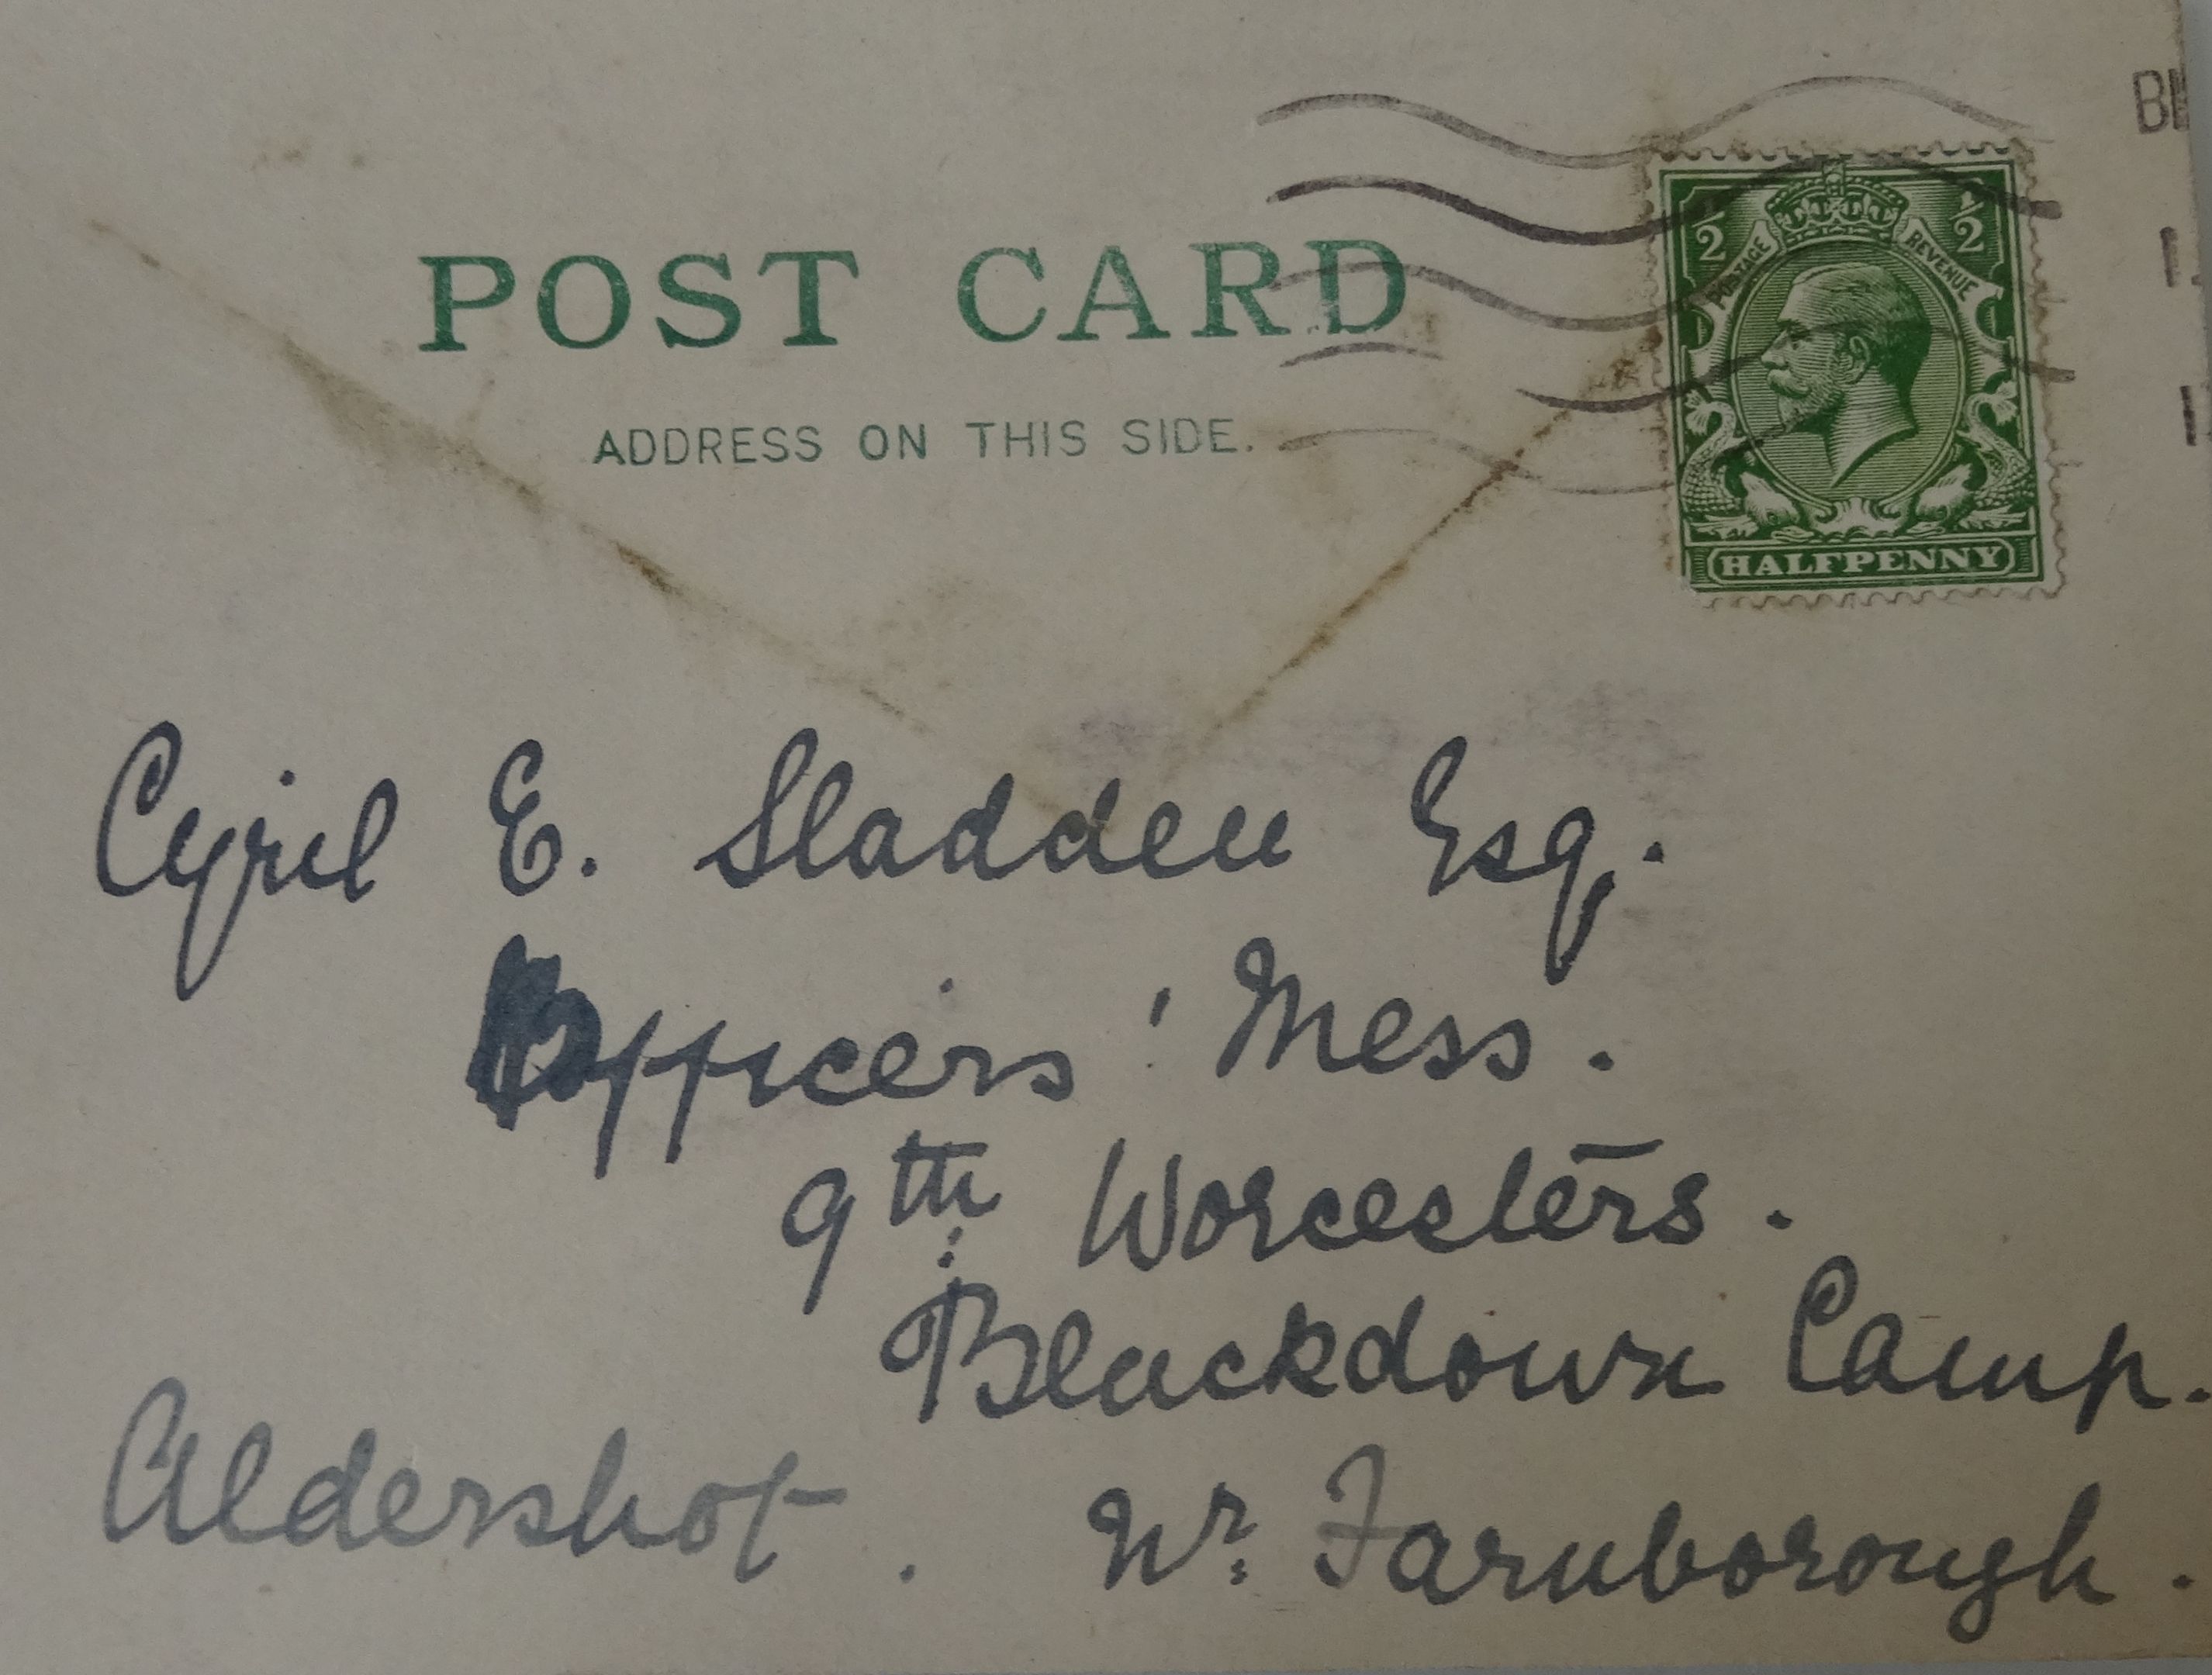 POST CARD
ADDRESS ON THIS SIDE.
½ ½
POSTAGE REVENUE
HALFPENNY
Cyril E. Sladden Esq.
Officers' Mess.
9th Worcesters.
Blackdown Camp.
Aldershot. Nr. Farnborough.